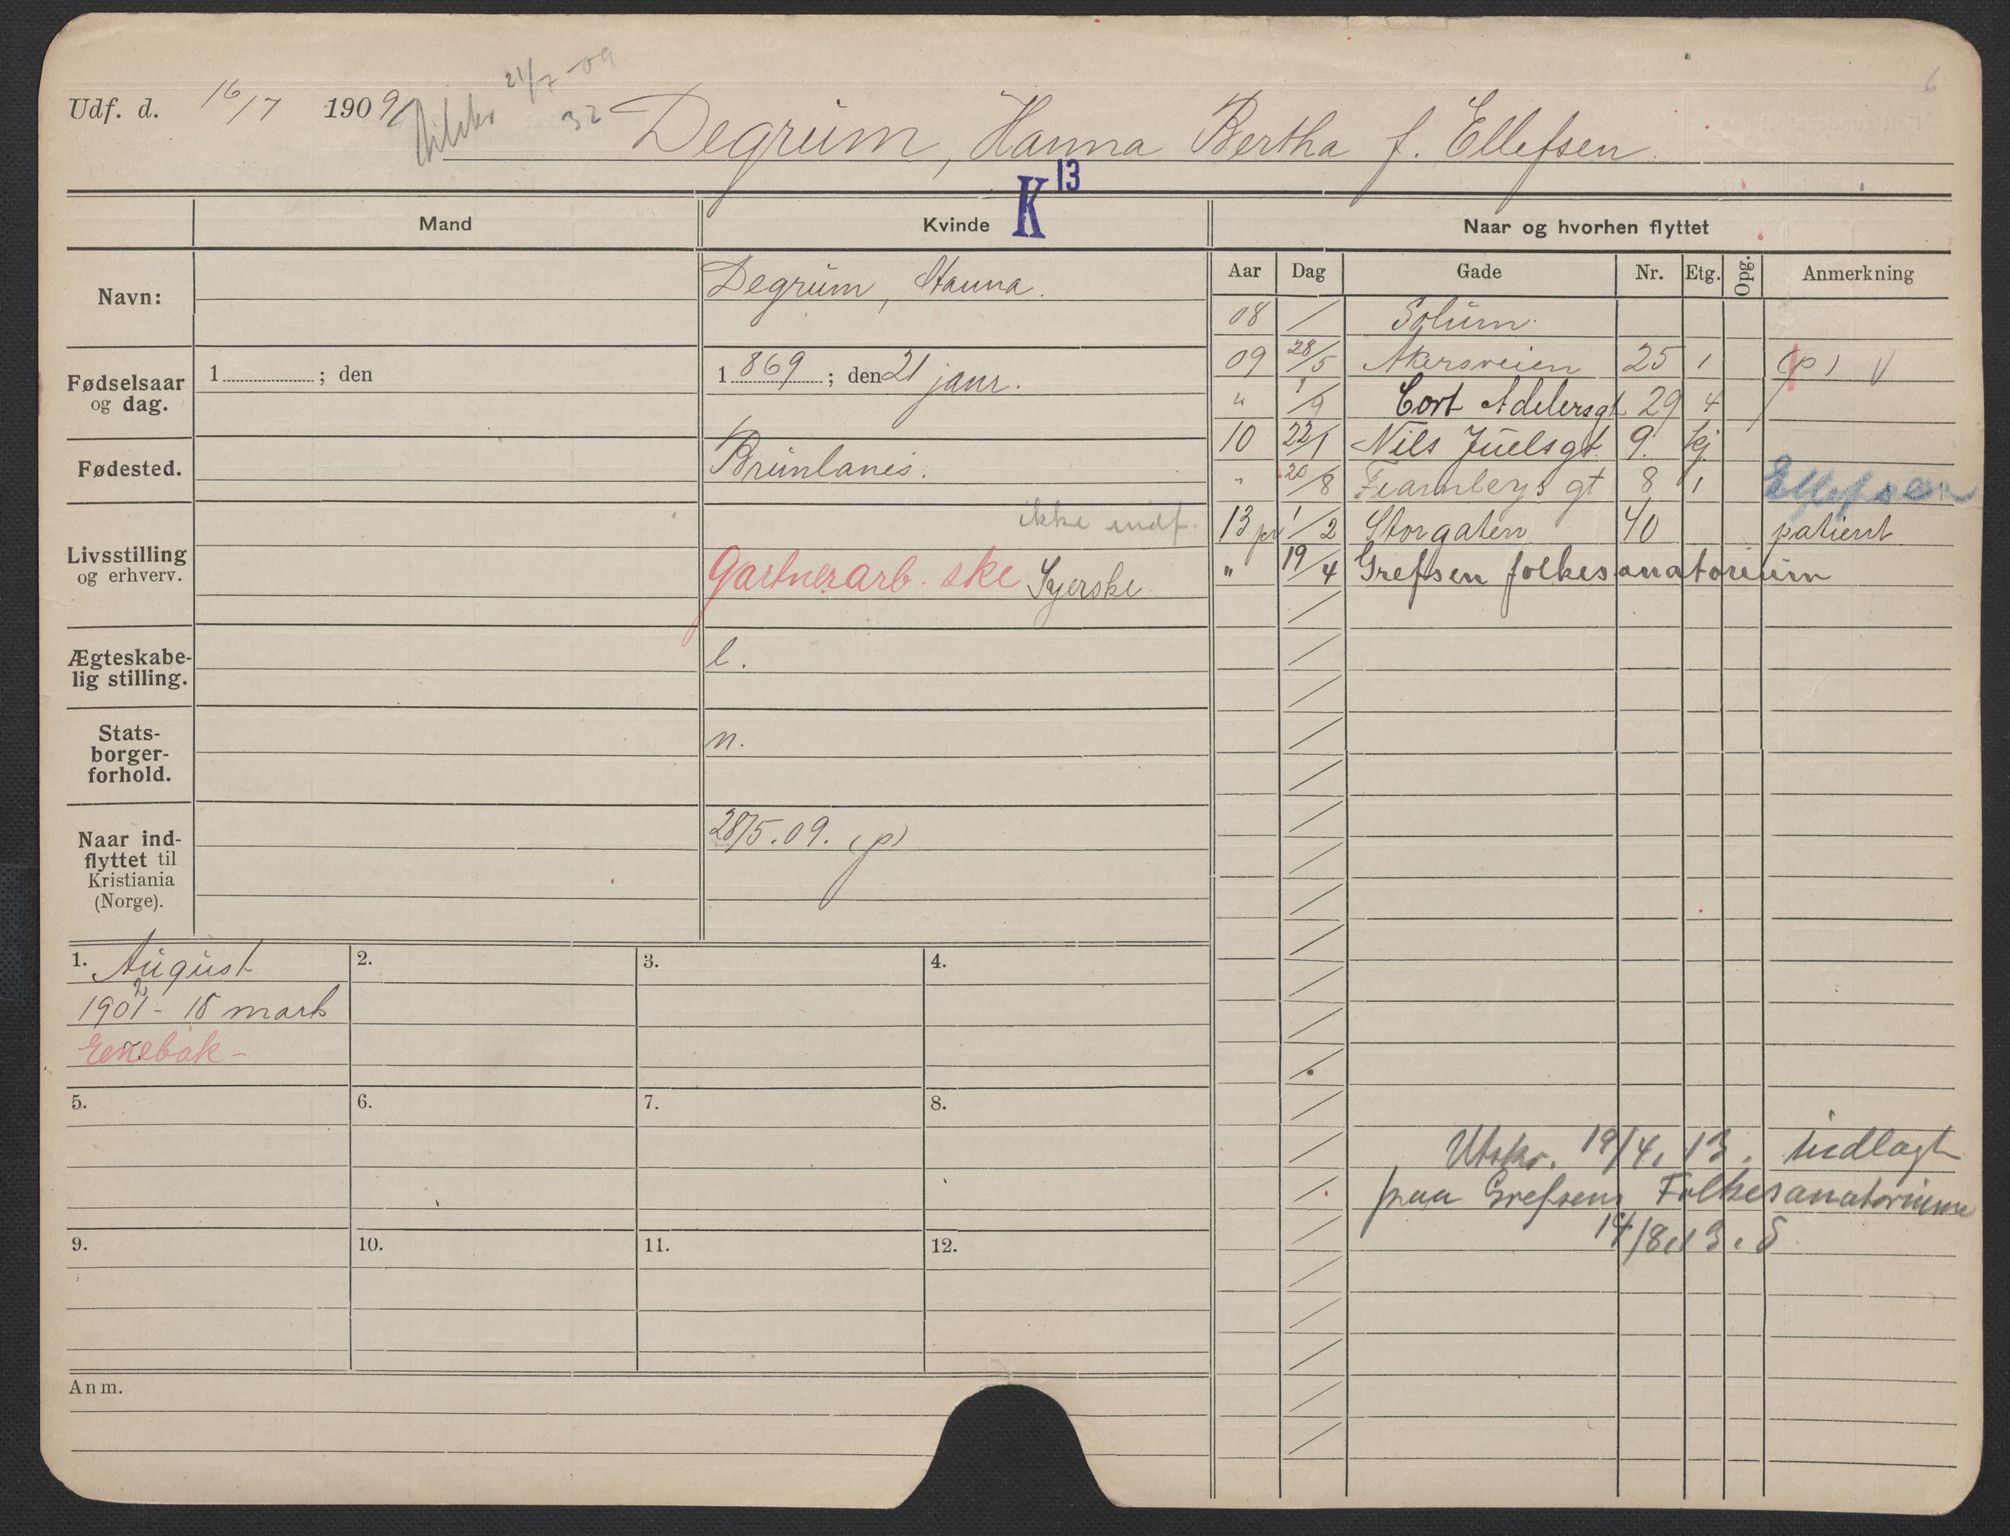 Udf. d. 16/7 1909 21/7-09
32
Degrum, Hanna Bertha f. Ellefsen
6
K 13
Mand Kvinde Naar og hvorhen flyttet
Aar Dag Gade Nr. Etg. Opg. Anmerkning
Navn: Degrum, Hanna.
Fødselsaar og dag. 1 ; den 1 869 ; den 21 janr.
Fødested. Brunlanes.
ikke indf.
Livsstilling og erhverv. Gartnerarb.ske Syerske
Ægteskabelig stilling. e.
Statsborgerforhold. n.
Naar indflyttet til Kristiania (Norge). 28/5.09. (p)
08 / Solum.
09 28/5 Akersveien 25 1 (p) v
" 1/9 Cort Adelersgt. 29 4
10 22/1 Nils Juelsgt. 9. kj
" 20/8 Fearnleys gt 8 1 Ellefsen
13 pr 1/2 Storgaten 40 patient
" 19/4 Grefsen folkesanatorium
Utskr. 19/4. 13. indlagt
paa Grefsens Folkesanatorium
14/8.13. d
1. August
1901 2 - 18 mark
Enebak -
2.
3.
4.
5.
6.
7.
8.
9.
10.
11.
12.
Anm.